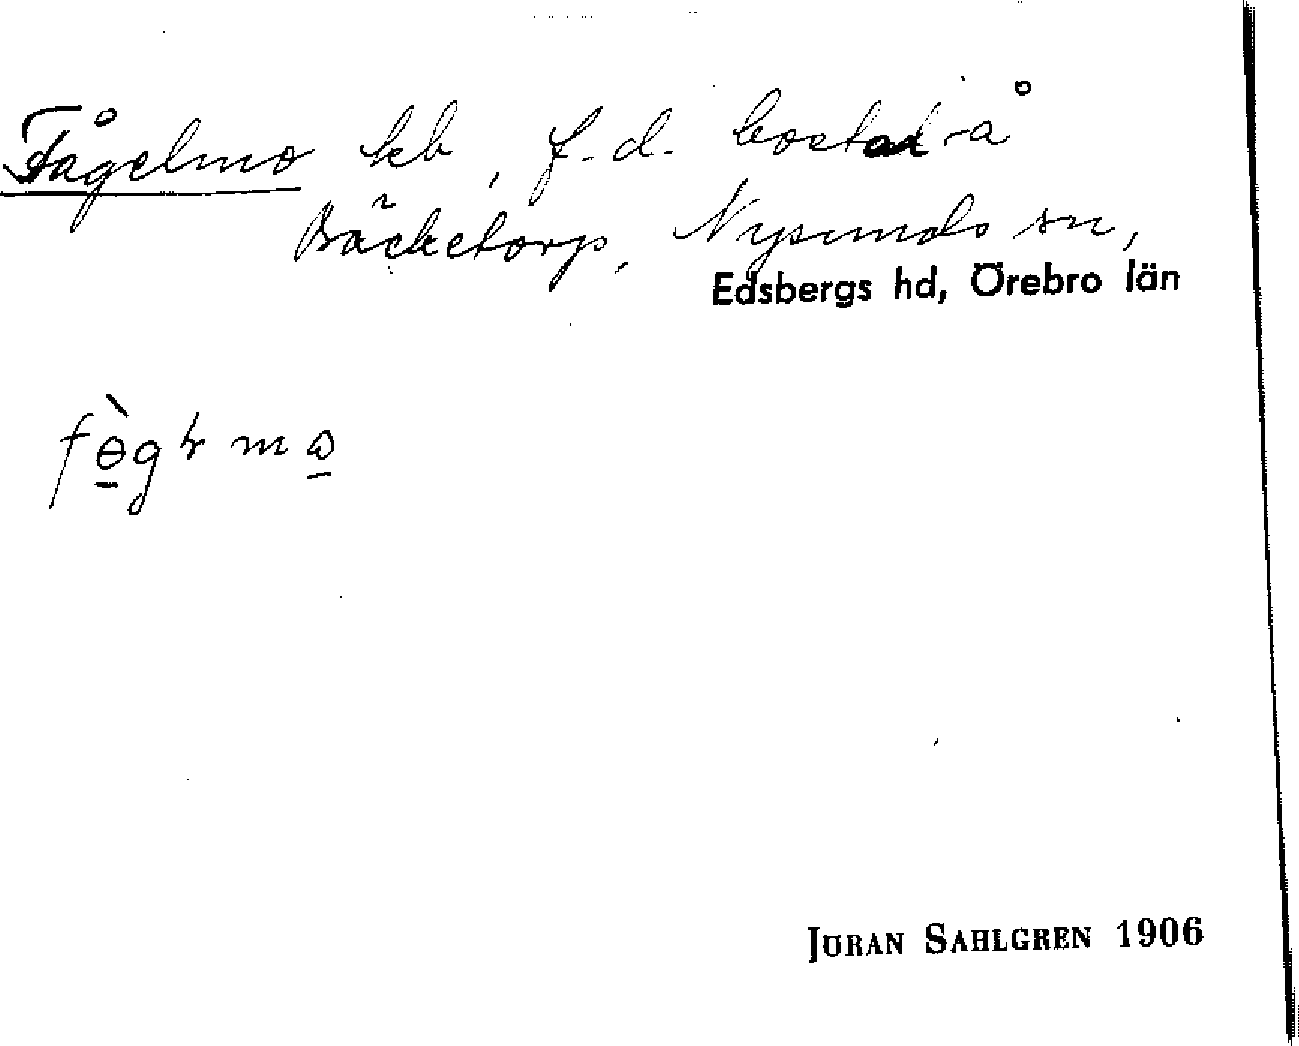 Fågelmo kb, f.d. bostad på
Bäcketorp, Nysunds sn,
Edsbergs hd, Örebro län
JÖRAN SAHLGREN 1906